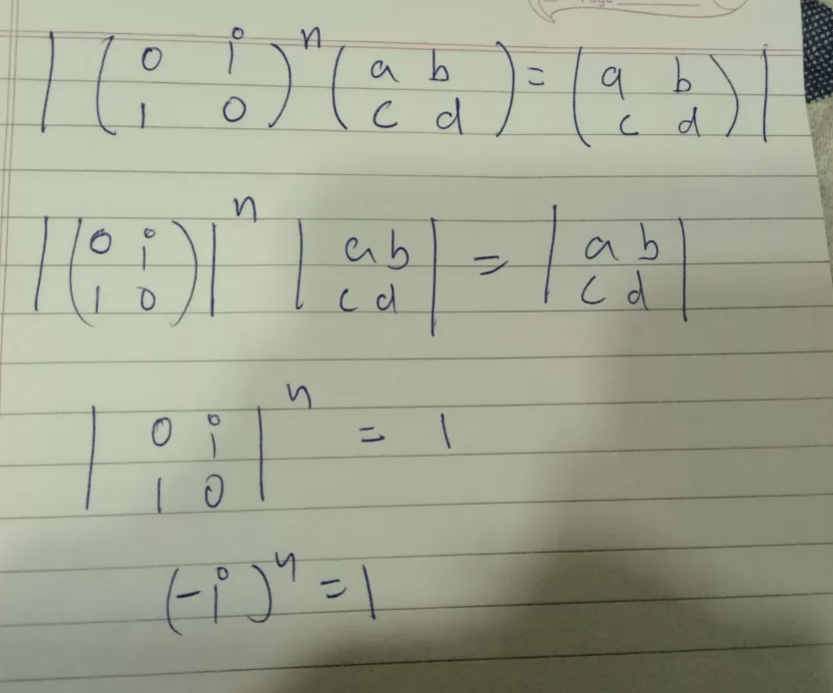 | (0 i 1 0)^n (a b c d) = (a b c d) |
| (0 i 1 0) |^n | a b c d | = | a b c d |
| 0 i 1 0 |^n = 1
(-i)^n = 1